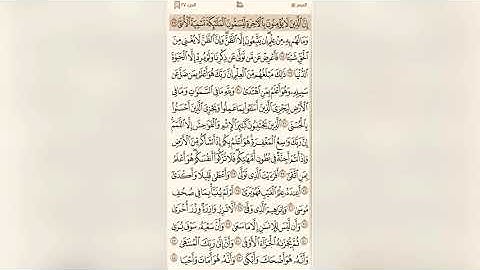 النجم الجزء ٢٧
إِنَّ ٱلَّذِينَ لَا يُؤْمِنُونَ بِٱلْـَٔاخِرَةِ لَيُسَمُّونَ ٱلْمَلَـٰٓئِكَةَ تَسْمِيَةَ ٱلْأُنثَىٰ ٢٧
وَمَا لَهُم بِهِۦ مِنْ عِلْمٍ إِن يَتَّبِعُونَ إِلَّا ٱلظَّنَّ وَإِنَّ ٱلظَّنَّ لَا يُغْنِى مِنَ
ٱلْحَقِّ شَيْـًٔا ٢٨ فَأَعْرِضْ عَن مَّن تَوَلَّىٰ عَن ذِكْرِنَا وَلَمْ يُرِدْ إِلَّا ٱلْحَيَوٰةَ
ٱلدُّنْيَا ٢٩ ذَٰلِكَ مَبْلَغُهُم مِّنَ ٱلْعِلْمِ إِنَّ رَبَّكَ هُوَ أَعْلَمُ بِمَن ضَلَّ عَن
سَبِيلِهِۦ وَهُوَ أَعْلَمُ بِمَنِ ٱهْتَدَىٰ ٣٠ وَلِلَّهِ مَا فِى ٱلسَّمَـٰوَٰتِ وَمَا فِى
ٱلْأَرْضِ لِيَجْزِىَ ٱلَّذِينَ أَسَـٰٓـُٔوا۟ بِمَا عَمِلُوا۟ وَيَجْزِىَ ٱلَّذِينَ أَحْسَنُوا۟
بِٱلْحُسْنَى ٣١ ٱلَّذِينَ يَجْتَنِبُونَ كَبَـٰٓئِرَ ٱلْإِثْمِ وَٱلْفَوَٰحِشَ إِلَّا ٱللَّمَمَ
إِنَّ رَبَّكَ وَٰسِعُ ٱلْمَغْفِرَةِ هُوَ أَعْلَمُ بِكُمْ إِذْ أَنشَأَكُم مِّنَ ٱلْأَرْضِ
وَإِذْ أَنتُمْ أَجِنَّةٌ فِى بُطُونِ أُمَّهَـٰتِكُمْ فَلَا تُزَكُّوٓا۟ أَنفُسَكُمْ هُوَ أَعْلَمُ
بِمَنِ ٱتَّقَىٰٓ ٣٢ أَفَرَءَيْتَ ٱلَّذِى تَوَلَّىٰ ٣٣ وَأَعْطَىٰ قَلِيلًا وَأَكْدَىٰٓ ٣٤
أَعِندَهُۥ عِلْمُ ٱلْغَيْبِ فَهُوَ يَرَىٰٓ ٣٥ أَمْ لَمْ يُنَبَّأْ بِمَا فِى صُحُفِ
مُوسَىٰ ٣٦ وَإِبْرَٰهِيمَ ٱلَّذِى وَفَّىٰٓ ٣٧ أَلَّا تَزِرُ وَازِرَةٌ وِزْرَ أُخْرَىٰ ٣٨
وَأَن لَّيْسَ لِلْإِنسَـٰنِ إِلَّا مَا سَعَىٰ ٣٩ وَأَنَّ سَعْيَهُۥ سَوْفَ يُرَىٰ ٤٠
ثُمَّ يُجْزَىٰهُ ٱلْجَزَآءَ ٱلْأَوْفَىٰ ٤١ وَأَنَّ إِلَىٰ رَبِّكَ ٱلْمُنتَهَىٰ ٤٢
وَأَنَّهُۥ هُوَ أَضْحَكَ وَأَبْكَىٰ ٤٣ وَأَنَّهُۥ هُوَ أَمَاتَ وَأَحْيَا ٤٤